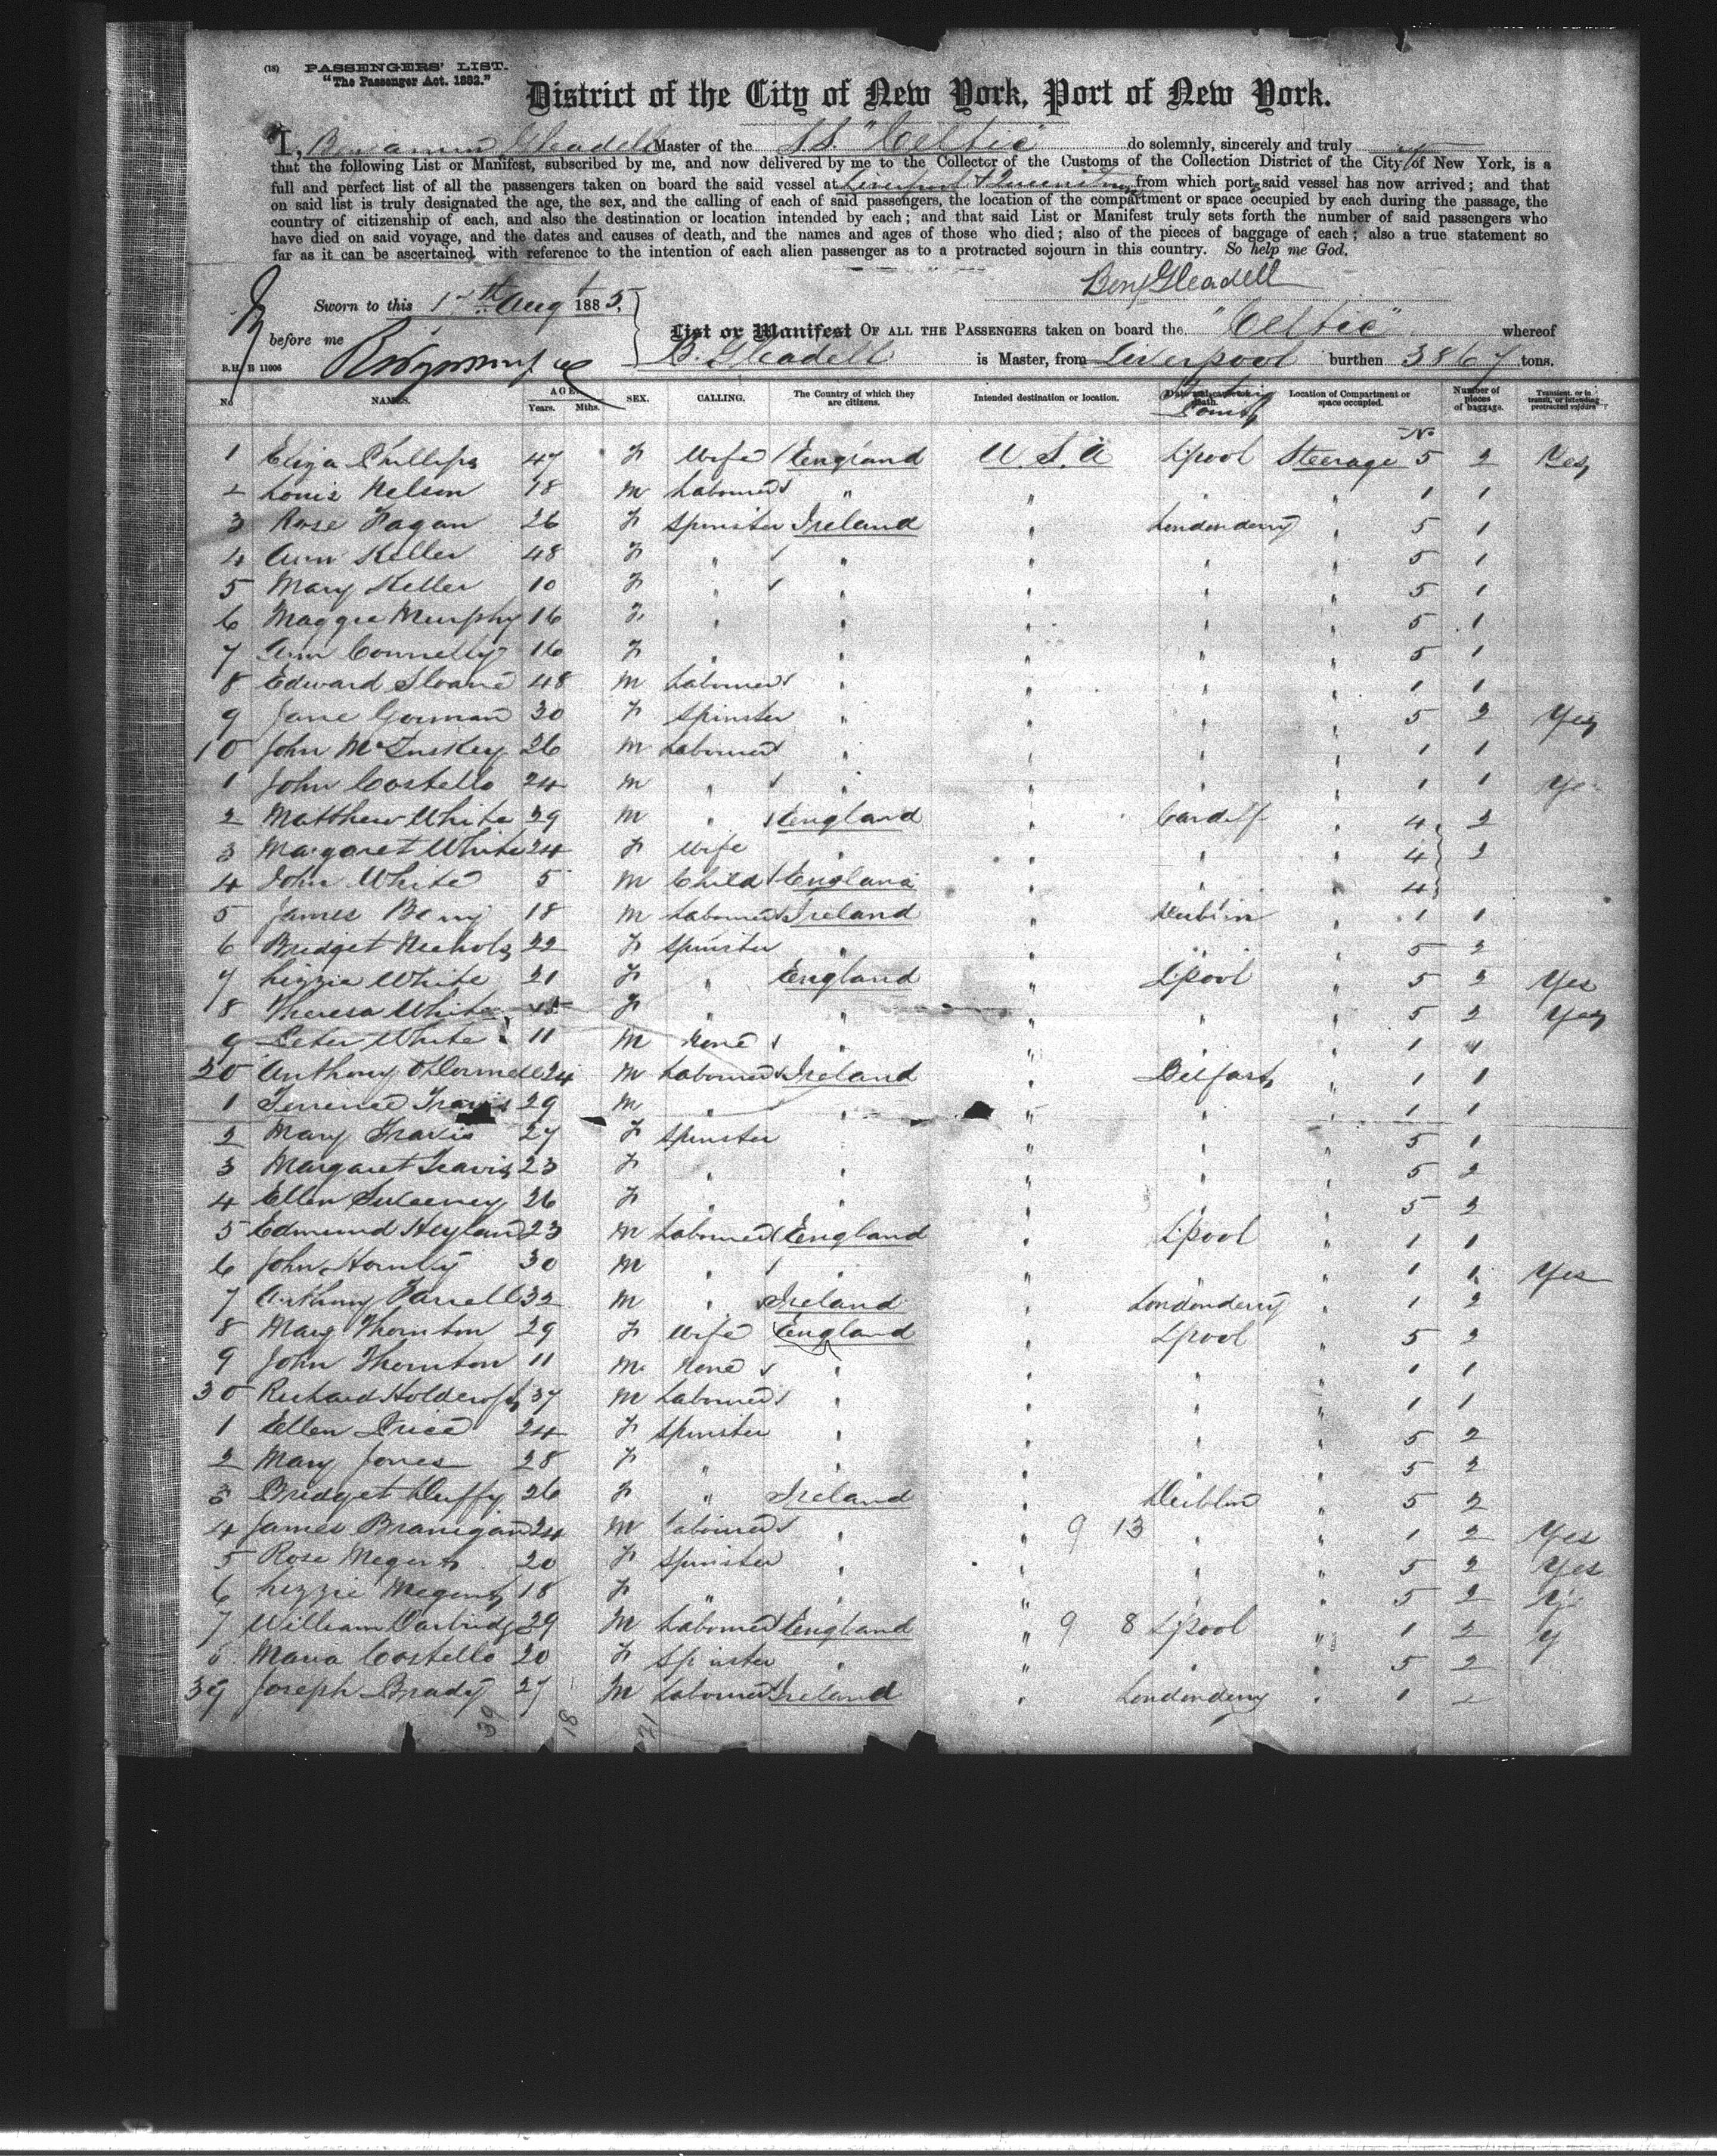 (18) PASSENGERS' LIST.
"The Passenger Act. 1882."
District of the City of New York, Port of New York.
I, Benjamin Gleadell Master of the S.S. "Celtic" do solemnly, sincerely and truly
that the following List or Manifest, subscribed by me, and now delivered by me to the Collector of the Customs of the Collection District of the City of New York, is a
full and perfect list of all the passengers taken on board the said vessel at Liverpool & Queenstown from which ports said vessel has now arrived; and that
on said list is truly designated the age, the sex, and the calling of each of said passengers, the location of the compartment or space occupied by each during the passage, the
country of citizenship of each, and also the destination or location intended by each; and that said List or Manifest truly sets forth the number of said passengers who
have died on said voyage, and the dates and causes of death, and the names and ages of those who died; also of the pieces of baggage of each; also a true statement so
far as it can be ascertained with reference to the intention of each alien passenger as to a protracted sojourn in this country. So help me God.
Benj Gleadell
Sworn to this th Augt 1885,
before me
List or Manifest OF ALL THE PASSENGERS taken on board the "Celtic" whereof
B. Gleadell is Master, from Liverpool burthen 3867 tons.
B.H. B 11006
No NAMES. AGE. Years. Mths. SEX. CALLING. The Country of which they are citizens. Intended destination or location. Location of Compartment or space occupied. Number of pieces of baggage. Transient, or in transit, or intending protracted sojourn
No
1 Eliza Phillips 47 F Wife England U.S.A L'pool Steerage 5 2 Yes
2 Louis Nelson 18 M Labourer " " " " 1 1
3 Rose Fagan 26 F Spinster Ireland " Londonderry " 5 1
4 Ann Keller 48 F " " " " " 5 1
5 Mary Keller 10 F " " " " " 5 1
6 Maggie Murphy 16 F " " " " " 5 1
7 Ann Connelly 16 F " " " " " 5 1
8 Edward Sloane 48 M Labourer " " " " 1 1
9 Jane Gorman 30 F Spinster " " " " 5 2 Yes
10 John McCuskey 26 M Labourer " " " " 1 1
1 John Costello 24 M " " " " " 1 1 Ye
2 Matthew White 29 M " England " Cardiff " 4 2
3 Margaret White 24 F Wife " " " " 4 2
4 John White 5 M Child England " " " 4
5 James Berry 18 M Labourer Ireland " Dublin " 1 1
6 Bridget Nichols 22 F Spinster " " " " 5 2
7 Lizzie White 21 F " England " L'pool " 5 2 Yes
8 Theresa White F " " " " " 5 2 Yes
9 Peter White 11 M None " " " " 1 "
20 Anthony O'Donnell 24 M Labourer Ireland " Belfast " 1 1
1 Terrence Travis 29 M " " " " " 1 1
2 Mary Travis 27 F Spinster " " " 5 1
3 Margaret Travis 23 F " " " " " 5 2
4 Ellen Sweeney 26 F " " " " " 5 2
5 Edmund Heyland 23 M Labourer England " L'pool " 1 1
6 John Hornby 30 M " " " " " 1 1 Yes
7 Anthony Farrell 32 M " Ireland " Londonderry " 1 2
8 Mary Thornton 29 F Wife England " L'pool " 5 2
9 John Thornton 11 M None " " " " 1 1
30 Richard Holdcroft 37 M Labourer " " " " 1 1
1 Ellen Price 24 F Spinster " " " " 5 2
2 Mary Jones 28 F " " " " " 5 2
3 Bridget Duffy 26 F " Ireland " Dublin " 5 2
4 James Branigan 24 M Labourer " " 9 13 " " 1 2 Yes
5 Rose 20 F Spinster " " " " 5 2 Yes
6 Lizzie 18 F " " " " " 5 2
7 William 29 M Labourer England " 9 8 L'pool " 1 2 Y
8 Maria Costello 20 F Spinster " " " " 5 2
39 Joseph Brady 27 M Labourer Ireland " Londonderry " 1 2
39 18 21